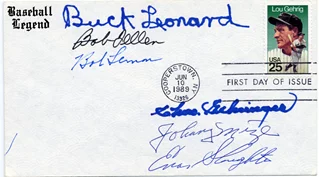 Baseball
Legend
Buck Leonard
Bob Feller
Bob Lemon
Lou Gehrig
USA
25
COOPERSTOWN, NY
JUN
10
1989
13326
FIRST DAY OF ISSUE
Chas. Gehringer
Johnny Mize
Enos Slaughter